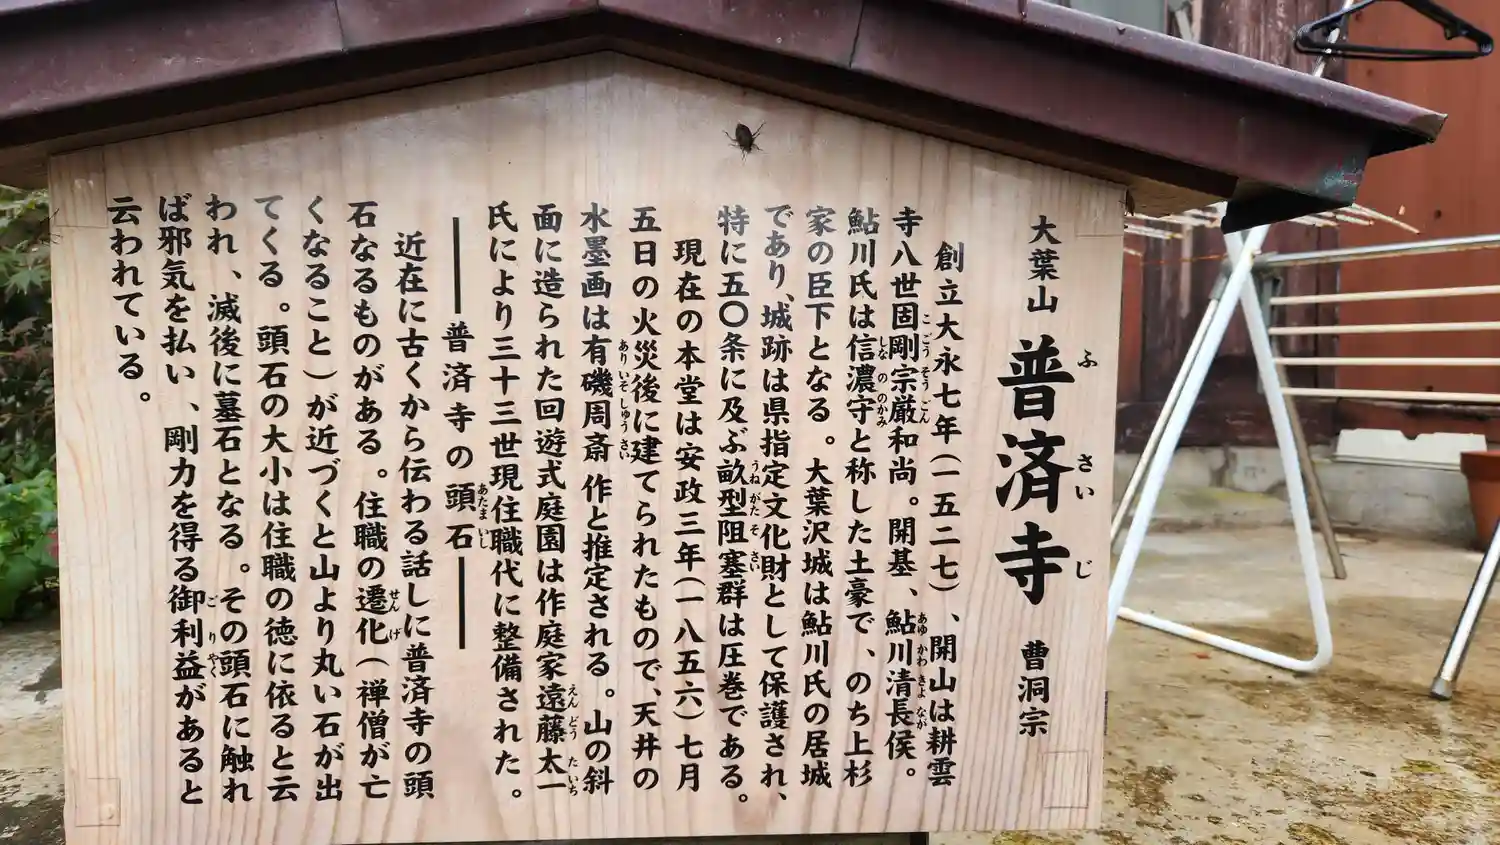 大葉山 普済寺 曹洞宗
ふ さい じ
創立大永七年(一五二七)、開山は耕雲
寺八世固剛宗厳和尚。開基、鮎川清長侯。
こ ごう そう ごん
あゆ かわ きよ なが
鮎川氏は信濃守と称した土豪で、のち上杉
しな の のかみ
家の臣下となる。大葉沢城は鮎川氏の居城
であり、城跡は県指定文化財として保護され、
特に五〇条に及ぶ畝型阻塞群は圧巻である。
うね がた そ さい
現在の本堂は安政三年(一八五六)七月
五日の火災後に建てられたもので、天井の
水墨画は有磯周斎 作と推定される。山の斜
あり いそ しゅう さい
面に造られた回遊式庭園は作庭家遠藤太一
えん どう た いち
氏により三十三世現住職代に整備された。
――普済寺の頭石――
あたま いし
近在に古くから伝わる話しに普済寺の頭
石なるものがある。住職の遷化(禅僧が亡
せん げ
くなること)が近づくと山より丸い石が出
てくる。頭石の大小は住職の徳に依ると云
われ、滅後に墓石となる。その頭石に触れ
ば邪気を払い、剛力を得る御利益があると
ご り やく
云われている。